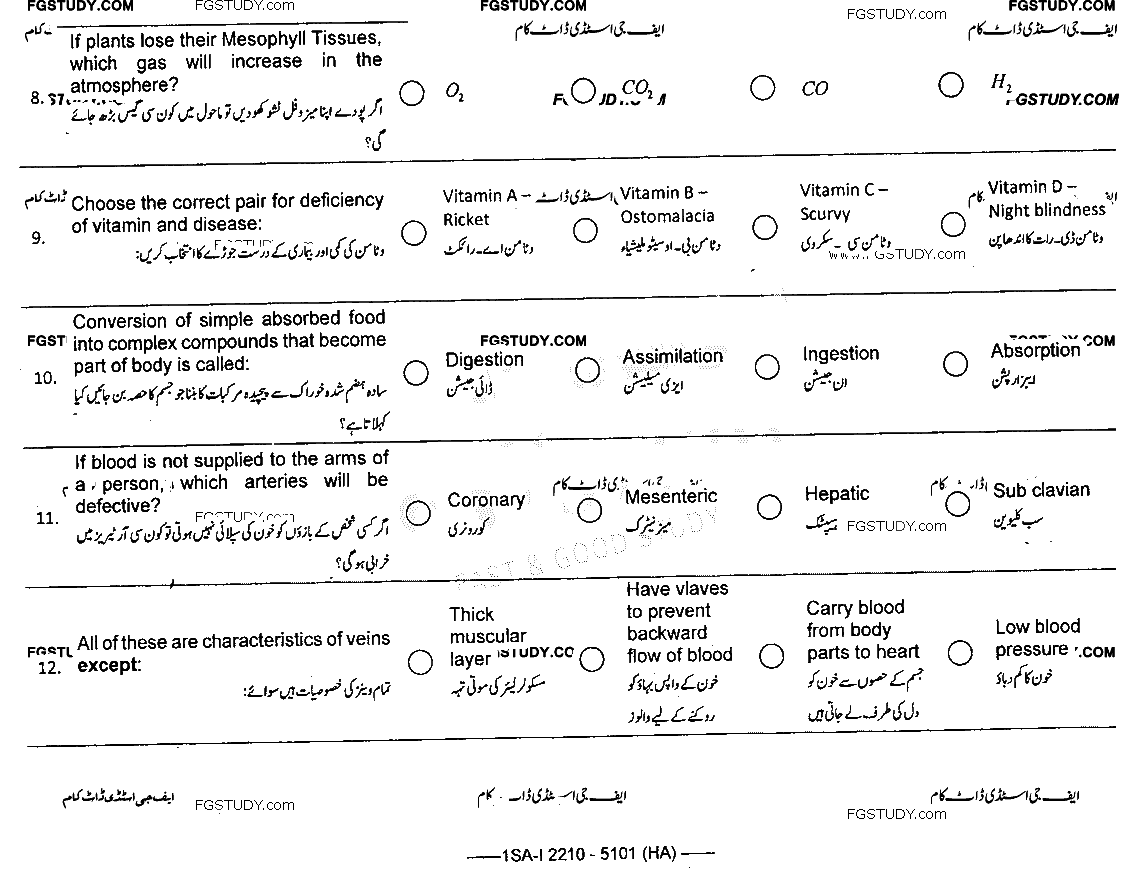 FGSTUDY.COM FGSTUDY.com FGSTUDY.COM FGSTUDY.com FGSTUDY.COM
ایف جی اسٹڈی ڈاٹ کام ایف جی اسٹڈی ڈاٹ کام
8. If plants lose their Mesophyll Tissues,
which gas will increase in the
atmosphere?
اگر پودے اپنا میزوفل ٹشو کھو دیں تو ماحول میں کون سی گیس بڑھ جائے
گی؟
O₂
CO₂
CO
H₂
GSTUDY.COM
9. Choose the correct pair for deficiency
of vitamin and disease:
وٹامن کی کمی اور بیماری کے درست جوڑے کا انتخاب کریں:
Vitamin A –
Ricket
وٹامن اے۔ رائکٹ
Vitamin B –
Ostomalacia
وٹامن بی۔ اوسٹیو ملیشیاء
Vitamin C –
Scurvy
وٹامن سی ۔ سکروی
www. FGSTUDY.com
Vitamin D –
Night blindness
وٹامن ڈی۔ رات کا اندھاپن
10. Conversion of simple absorbed food
into complex compounds that become
part of body is called:
سادہ ہضم شدہ خوراک سے پیچیدہ مرکبات کا بننا جو جسم کا حصہ بن جائیں کیا
کہلاتا ہے؟
FGSTUDY.COM
Digestion
ڈائی جیشن
Assimilation
ایزی میلیشن
Ingestion
ان جیشن
Absorption
ایبزارپشن
11. If blood is not supplied to the arms of
a person, which arteries will be
defective?
FGSTUDY.com
اگر کسی شخص کے بازوؤں کو خون کی سپلائی نہیں ہوتی تو کون سی آرٹیریز میں
خرابی ہوگی؟
Coronary
کورونری
Mesenteric
میزنیٹرک
Hepatic
ہیپیٹک
FGSTUDY.com
Sub clavian
سب کلیوین
FAST & GOOD STUDY
12. All of these are characteristics of veins
except:
تمام وینز کی خصوصیات ہیں سوائے:
Thick
muscular
layer
مسکولر لیئر کی موٹی تہہ
Have vlaves
to prevent
backward
flow of blood
خون کے واپس بہاؤ کو
روکنے کے لیے والوز
Carry blood
from body
parts to heart
جسم کے حصوں سے خون کو
دل کی طرف لے جاتی ہیں
Low blood
pressure
خون کا کم دباؤ
ایف جی اسٹڈی ڈاٹ کام FGSTUDY.com ایف جی اسٹڈی ڈاٹ کام ایف جی اسٹڈی ڈاٹ کام
FGSTUDY.com
—1SA-I 2210 - 5101 (HA) —